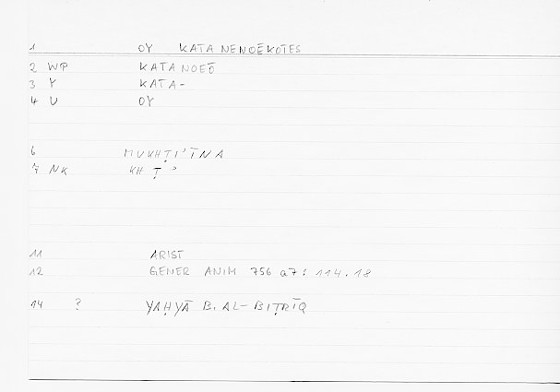 1 OY KATANENOĒKOTES
2 WP KATANOEŌ
3 Y KATA-
4 U OY
6 MUKHṬI'ĪNA
7 NK KHṬ'
11 ARIST
12 GENER ANIM 756 a7: 114.18
14 ? YAḤYĀ B. AL-BIṬRĪQ